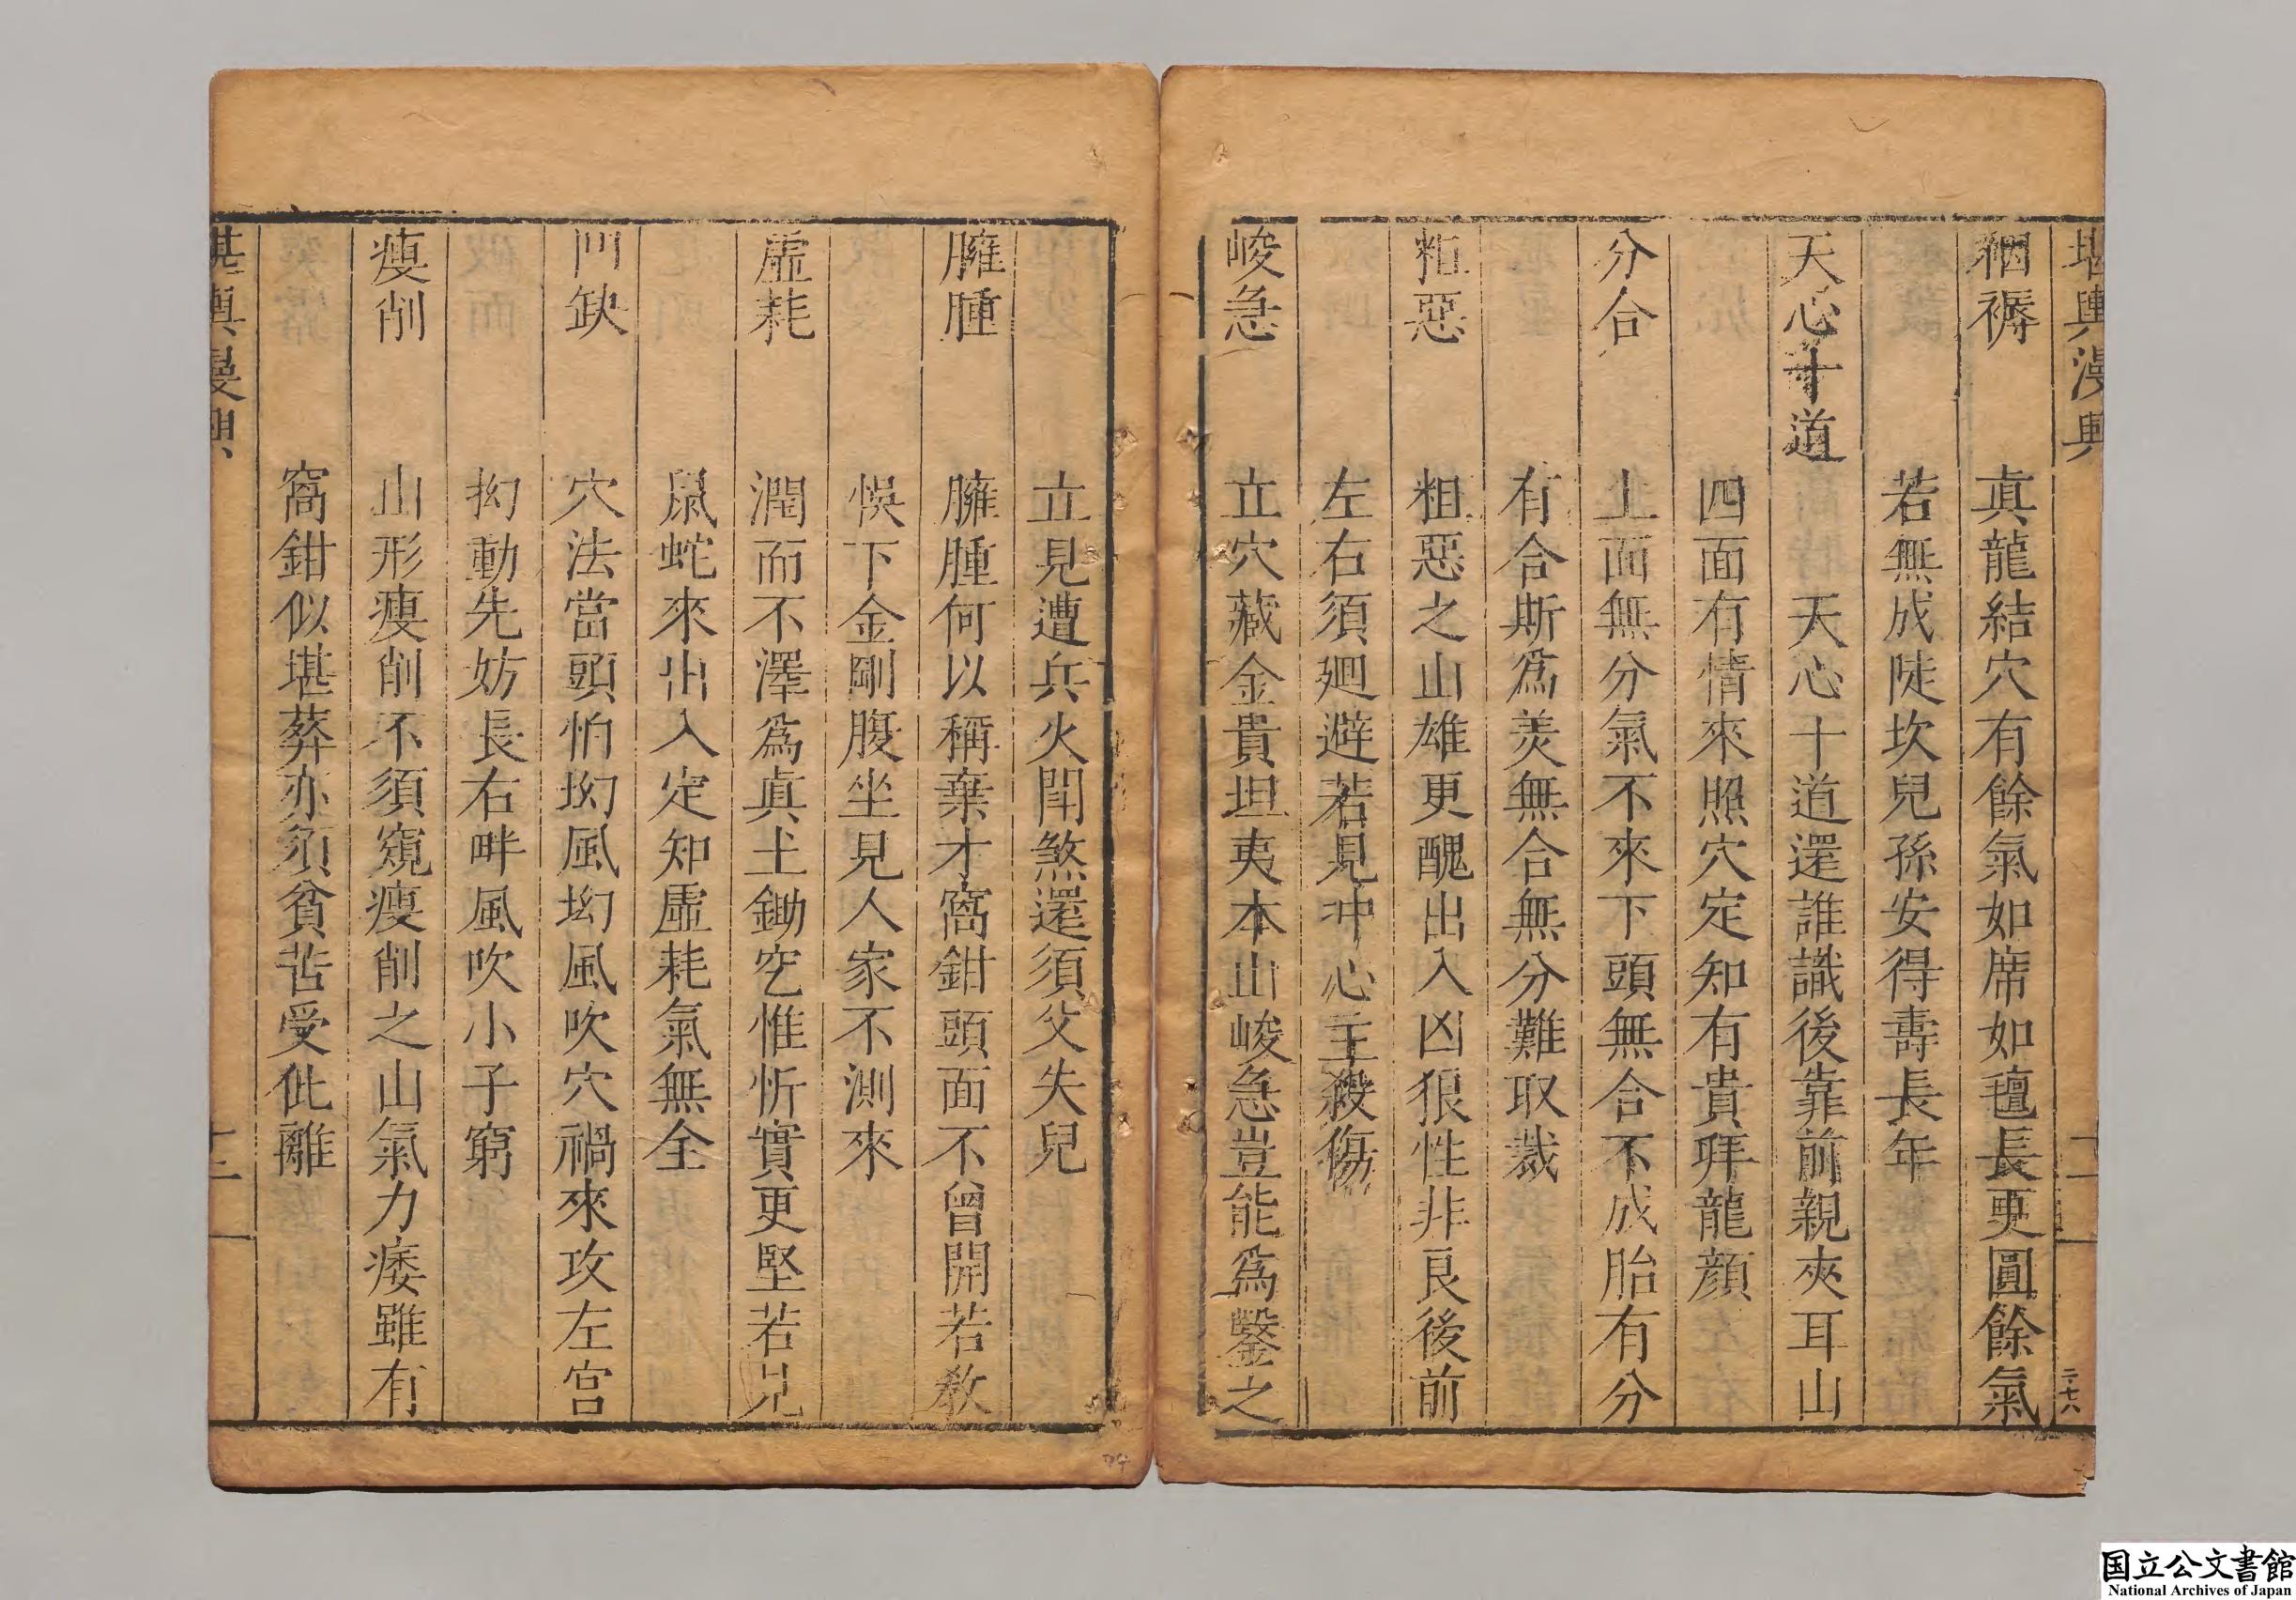 堪輿漫興
十一
二十六
裀褥 真龍結穴有餘氣如席如氊長更圓餘氣
若無成陡坎兒孫安得壽長年
天心十道 天心十道還誰識後靠前親夾耳山
四面有情來照穴定知有貴拜龍顔
分合 上面無分氣不來下頭無合不成胎有分
有合斯爲美無合無分難取裁
粗惡 粗惡之山雄更醜出入凶狠性非良後前
左右須廻避若見冲心主殺傷
峻急 立穴藏金貴坦夷本山峻急豈能爲鑿之
立見遭兵火閗煞還須父失兒
臃腫 臃腫何以稱棄才窩鉗頭面不曾開若教
悞下金剛腹坐見人家不測來
虛耗 潤而不澤爲真土鋤空惟忻實更堅若見
鼠蛇來出入定知虛耗氣無全
凹缺 穴法當頭怕㘭風㘭風吹穴禍來攻左宫
拗動先妨長右畔風吹小子窮
瘦削 山形瘦削不須窺瘦削之山氣力痿雖有
窩鉗似堪葬亦須貧苦受仳離
堪輿漫興
十二
国立公文書館
National Archives of Japan